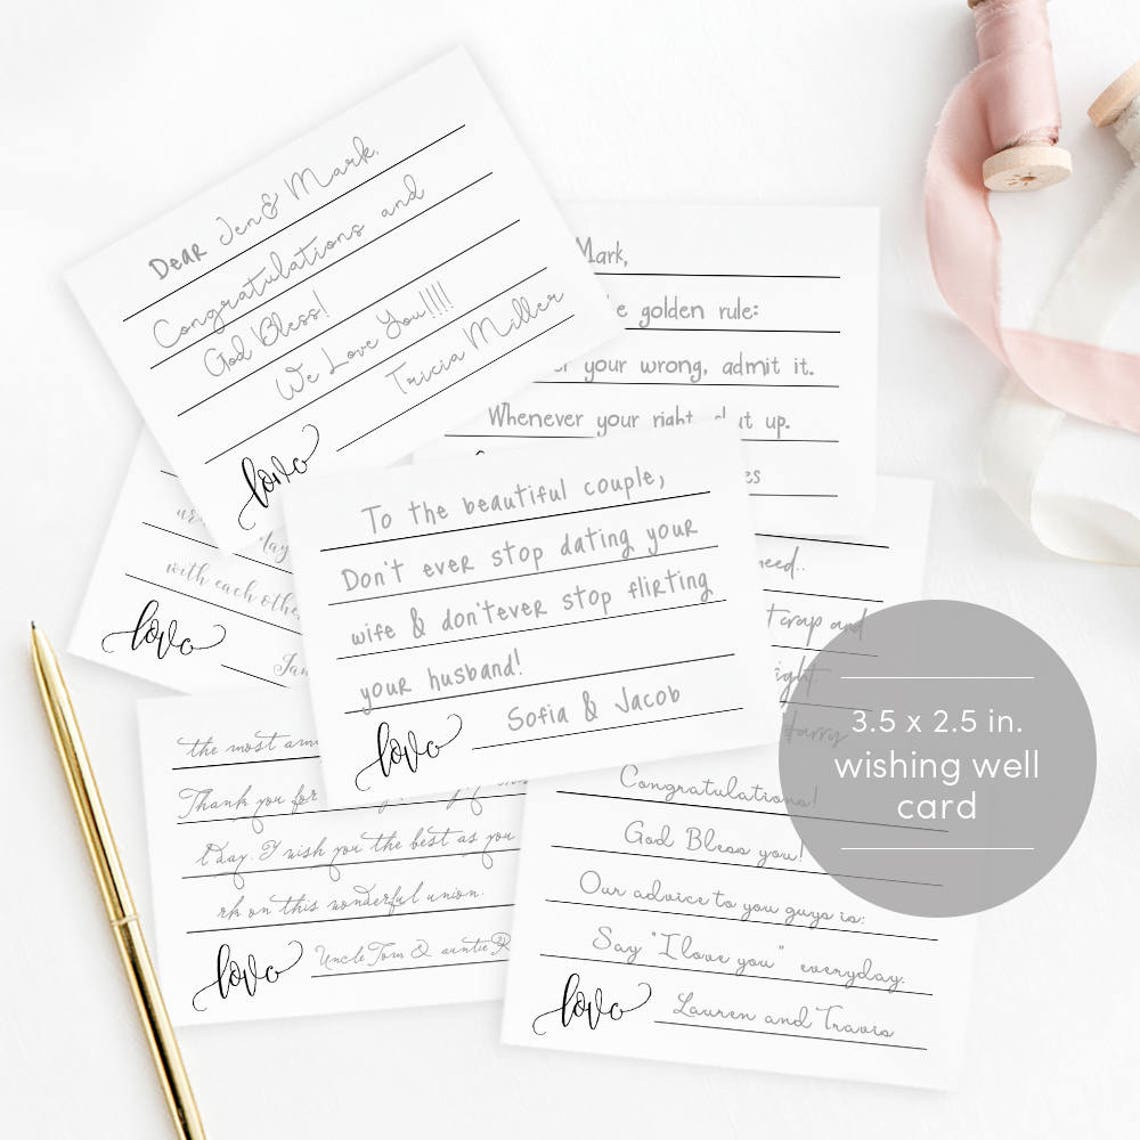 Dear Jen & Mark,
Congratulations and
God Bless!
We Love You!!!!
Tricia Miller
love
Mark,
golden rule:
your wrong, admit it.
Whenever your right up.
with each other
love
To the beautiful couple,
Don't ever stop dating your
wife & don'tever stop flirting
your husband!
love Sofia & Jacob
crap and
Harry
the most
Thank you for
day. I wish you the best as you
on this wonderful union.
love Uncle Tom & auntie R
Congratulations!
God Bless you!
Our advice to you guys is:
Say "I love you" everyday.
love Lauren and Travis
3.5 x 2.5 in.
wishing well
card